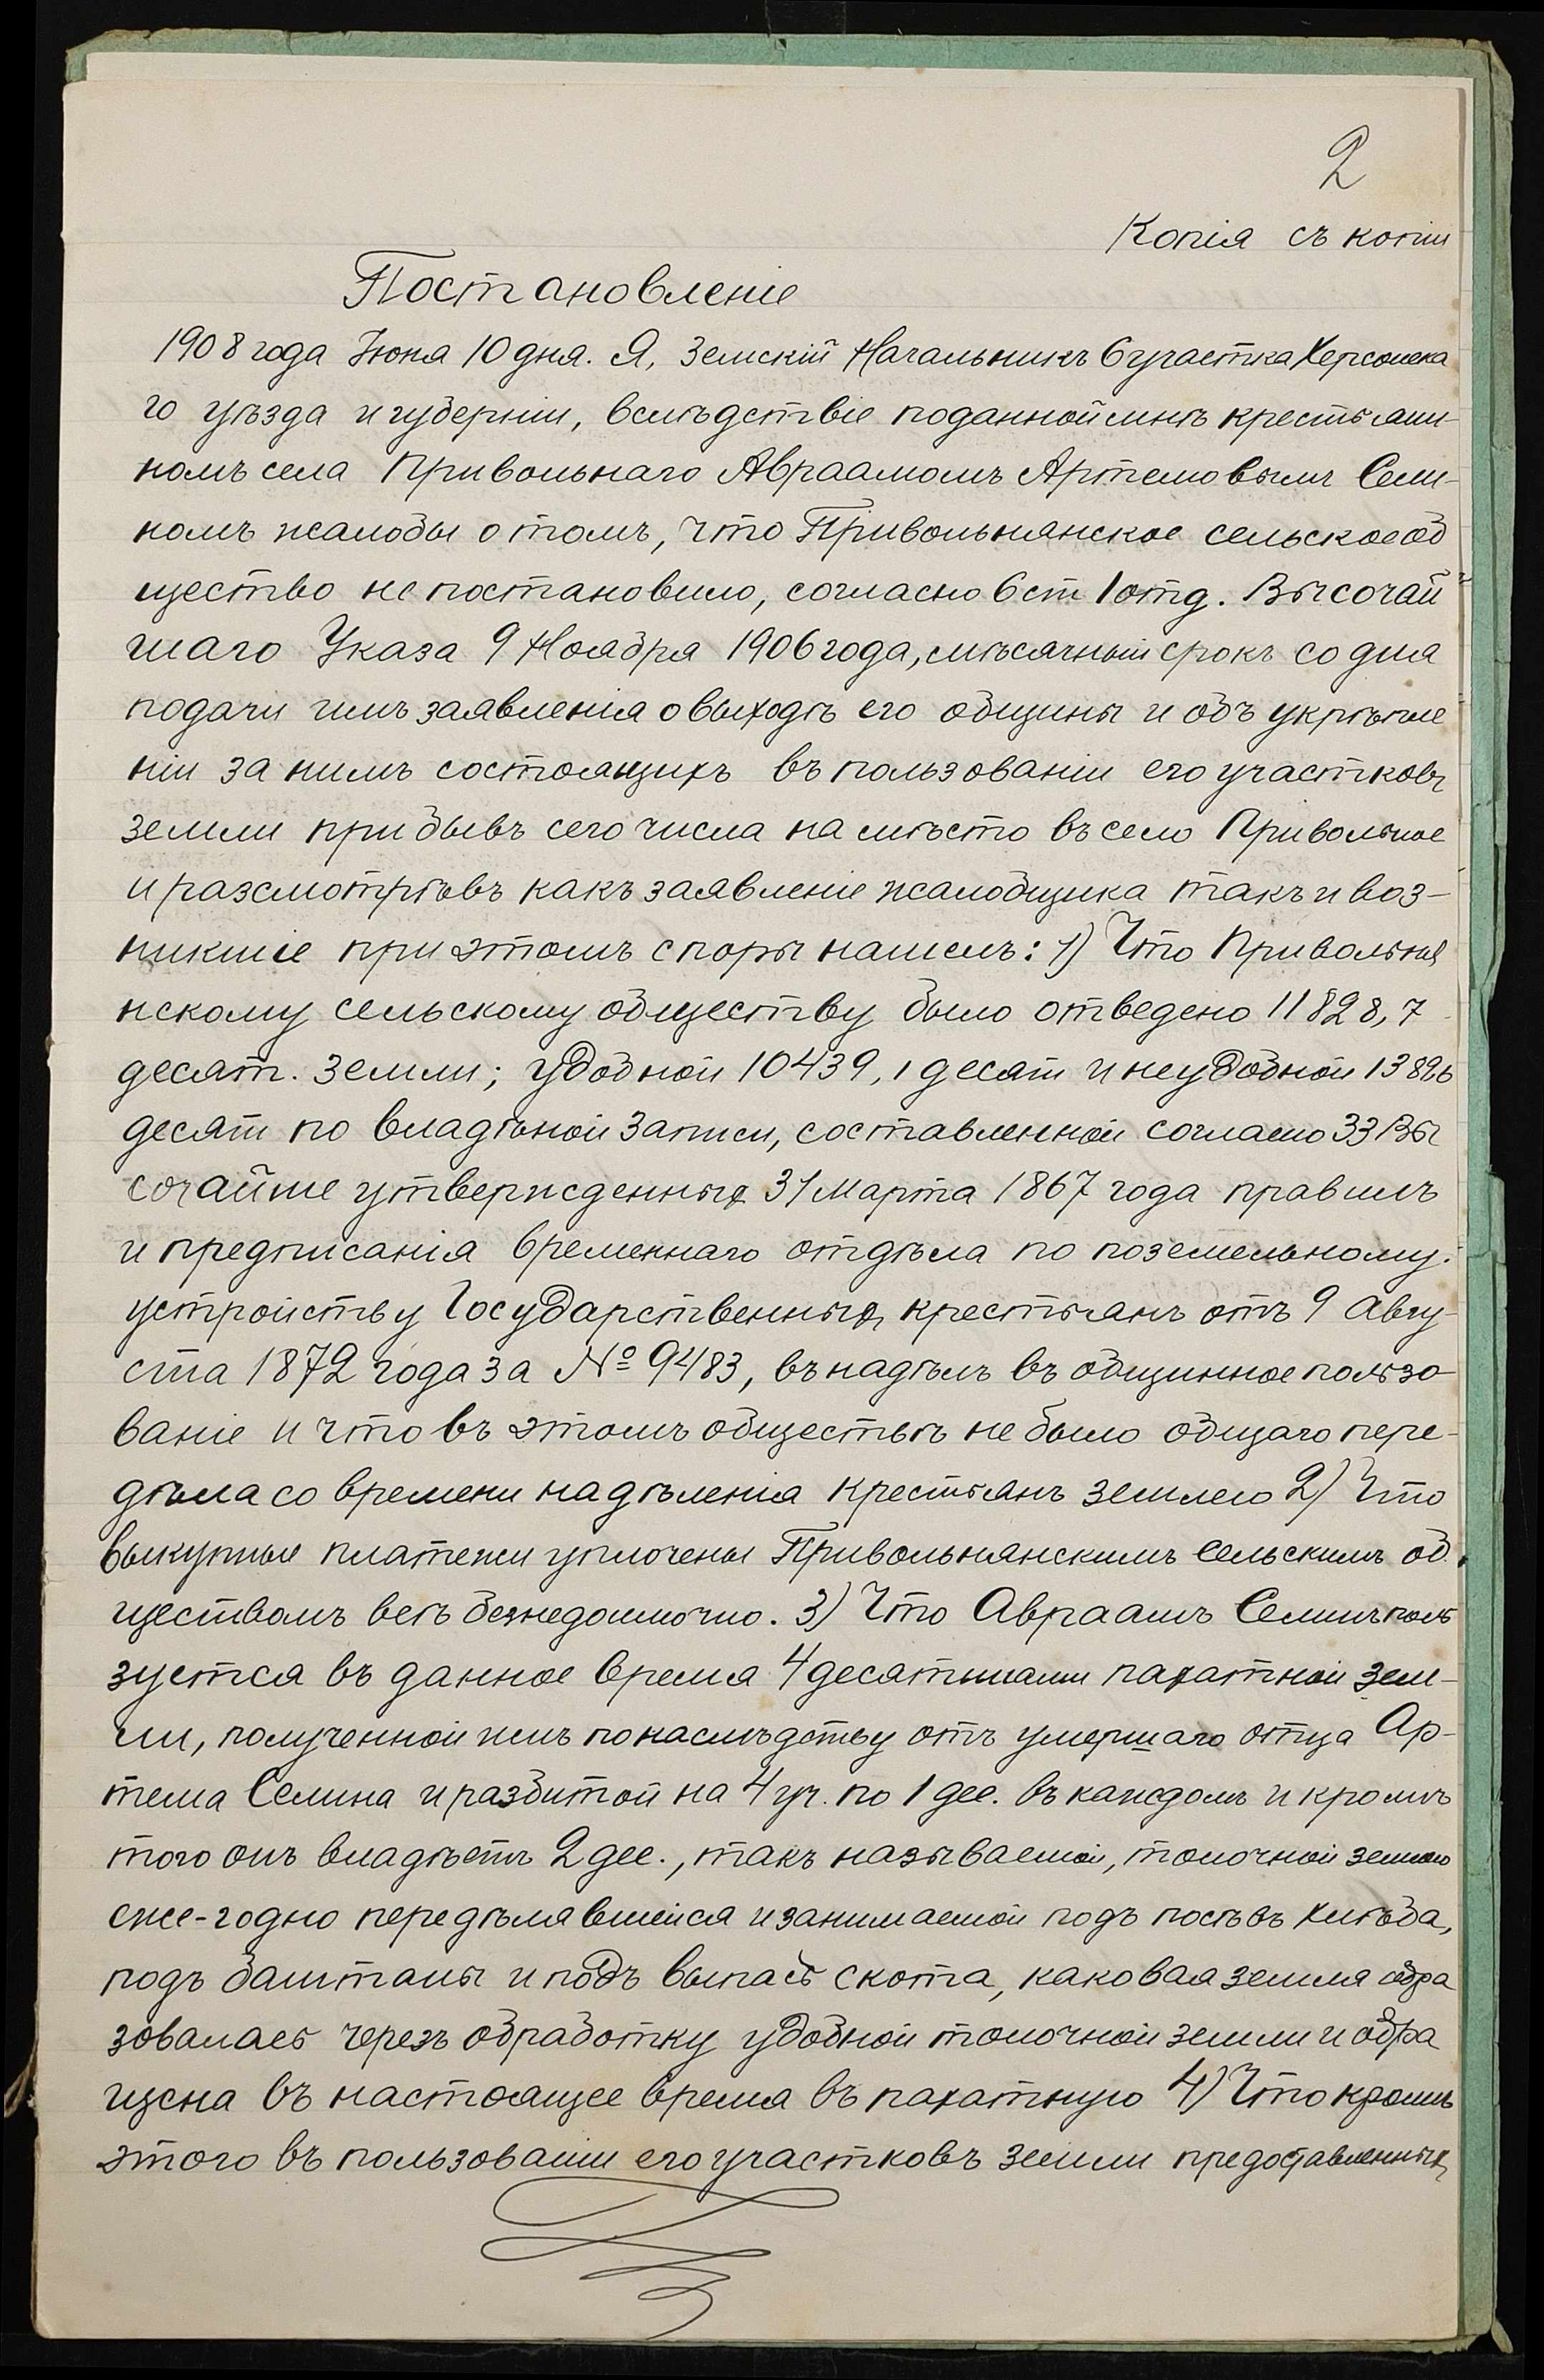 2
Копія съ копіи
Постановленіе
1908 года Іюня 10 дня. Я, Земскій Начальникъ 6 участка Херсонска
го уѣзда и губерніи, вслѣдствіе поданной мнѣ крестьяни-
номъ села Привольнаго Авраамомъ Артемовымъ Сели-
номъ жалобы о томъ, что Привольнянское сельское об
щество не постановило, согласно 6 ст 1 отд. Высочай
шаго Указа 9 Ноября 1906 года, мѣсячный срокъ со дня
подачи имъ заявленія о выходѣ его общины и объ укрѣпле
ніи за нимъ состоящихъ въ пользованіи его участковъ
земли прибывъ сего числа на мѣсто въ село Привольное
и разсмотрѣвъ какъ заявленіе жалобщика такъ и воз-
никшіе при этомъ споры нашелъ: 1) Что Привольня
нскому сельскому обществу было отведено 11828,7
десят. земли; удобной 10439,1 десят и неудобной 1389,6
десят по владѣнной записи, составленной согласно 33 Вы
сочайше утвержденныхъ 31 Марта 1867 года правилъ
и предписанія временнаго отдѣла по поземельному
устройству Государственныхъ крестьянъ отъ 9 Авгу-
ста 1872 года за № 9483, въ надѣлъ въ общинное пользо-
ваніе и что въ этомъ обществѣ не было общаго пере-
дѣла со времени надѣленія крестьянъ землею 2) Что
выкупные платежи уплочены Привольнянскимъ сельскимъ об.
ществомъ всѣ безнедоимочно. 3) Что Авраамъ Селинъ поль
зуется въ данное время 4 десятинами пахатной зем-
ли, полученной имъ по наслѣдству отъ умершаго отца Ар-
тема Селина и разбитой на 4 уч. по 1 дес. въ каждомъ и кромѣ
того онъ владѣетъ 2 дес., такъ называемой, толочной землею
еже-годно передѣлявшейся и занимаемой подъ посѣвъ хлѣба,
подъ баштаны и подъ выпасъ скота, каковая земля обра
зовалась черезъ обработку удобной толочной земли и обра
щена въ настоящее время въ пахатную 4) Что кромѣ
этого въ пользованіи его участковъ земли предоставленныхъ